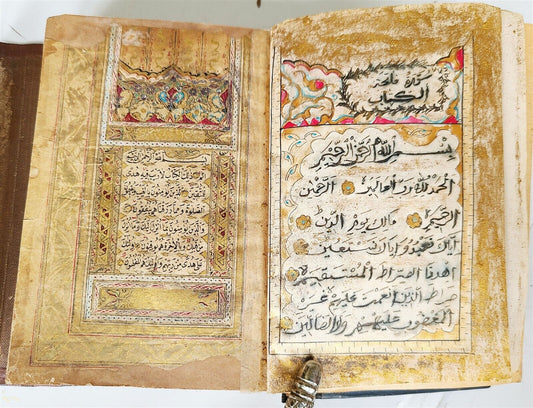 سورة فاتحة
الكتاب
بسم الله الرحمن الرحيم
الحمد لله رب العالمين الرحمن
الرحيم مالك يوم الدين
اياك نعبد واياك نستعين
اهدنا الصراط المستقيم
صراط الذين انعمت عليهم غير
المغضوب عليهم ولا الضالين
بسم الله الرحمن الرحيم
الم ذلك الكتاب لا ريب فيه هدى
للمتقين الذين يؤمنون بالغيب ويقيمون
الصلوة ومما رزقناهم ينفقون
والذين يؤمنون بما انزل
اليك وما انزل من قبلك وبالاخرة